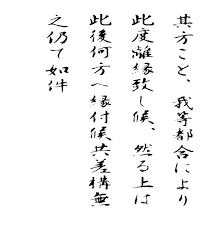 其方こと、我等都合により
此度離縁致し候、然る上は
此後何方へ縁付候共差構無
之仍て如件